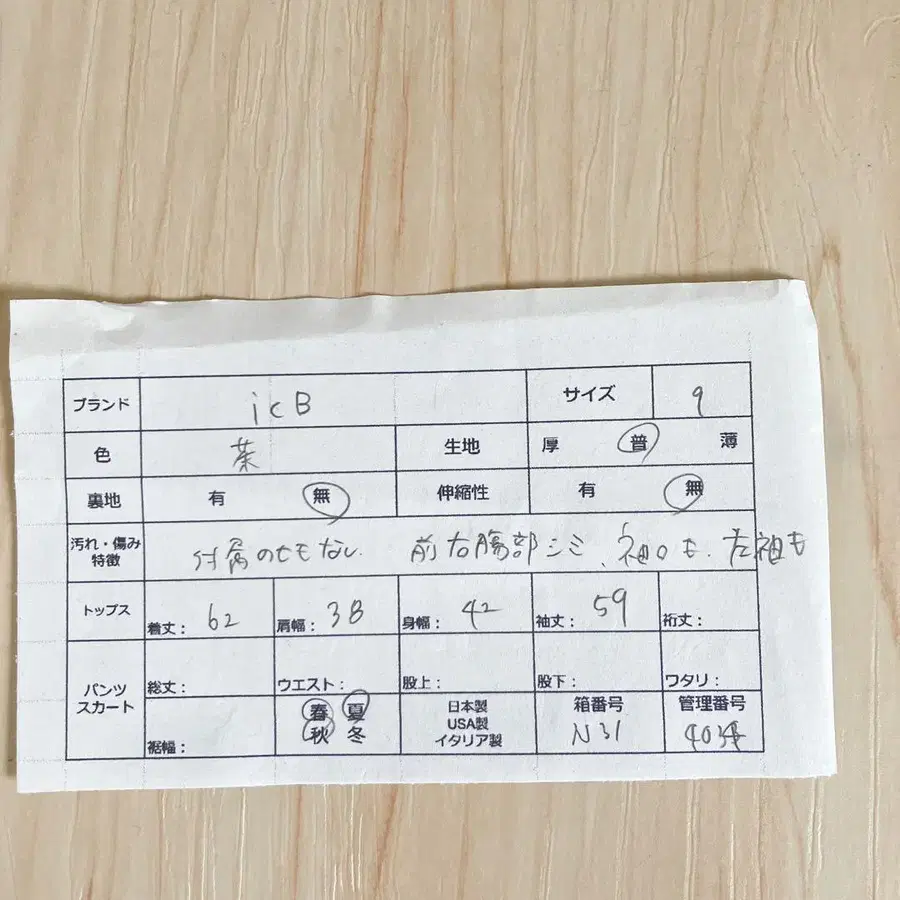 ブランド icB サイズ 9
色 茶 生地 厚 普 薄
裏地 有 無 伸縮性 有 無
汚れ・傷み
特徴 付属のヒモなし. 前右腹部シミ、袖口も、左袖も
トップス 着丈： 62 肩幅： 38 身幅： 42 袖丈： 59 裄丈：
パンツ
スカート 総丈： ウエスト： 股上： 股下： ワタリ：
裾幅： 春 夏
秋 冬
日本製
USA製
イタリア製
箱番号
N31
管理番号